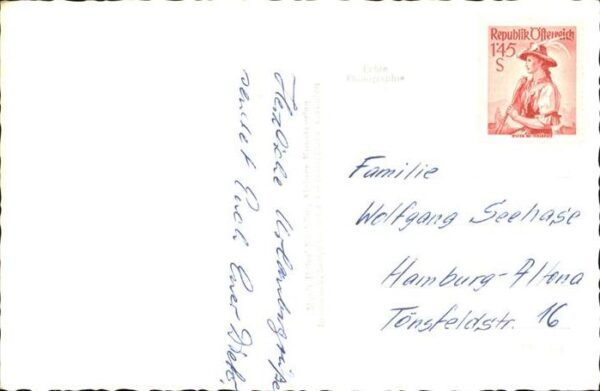 Herzliche Urlaubsgrüße
sendet Euch Euer Dieter
Echte
Photographie
Republik Österreich
1'45
S
Familie
Wolfgang Seehase
Hamburg-Altona
Tönsfeldstr. 16